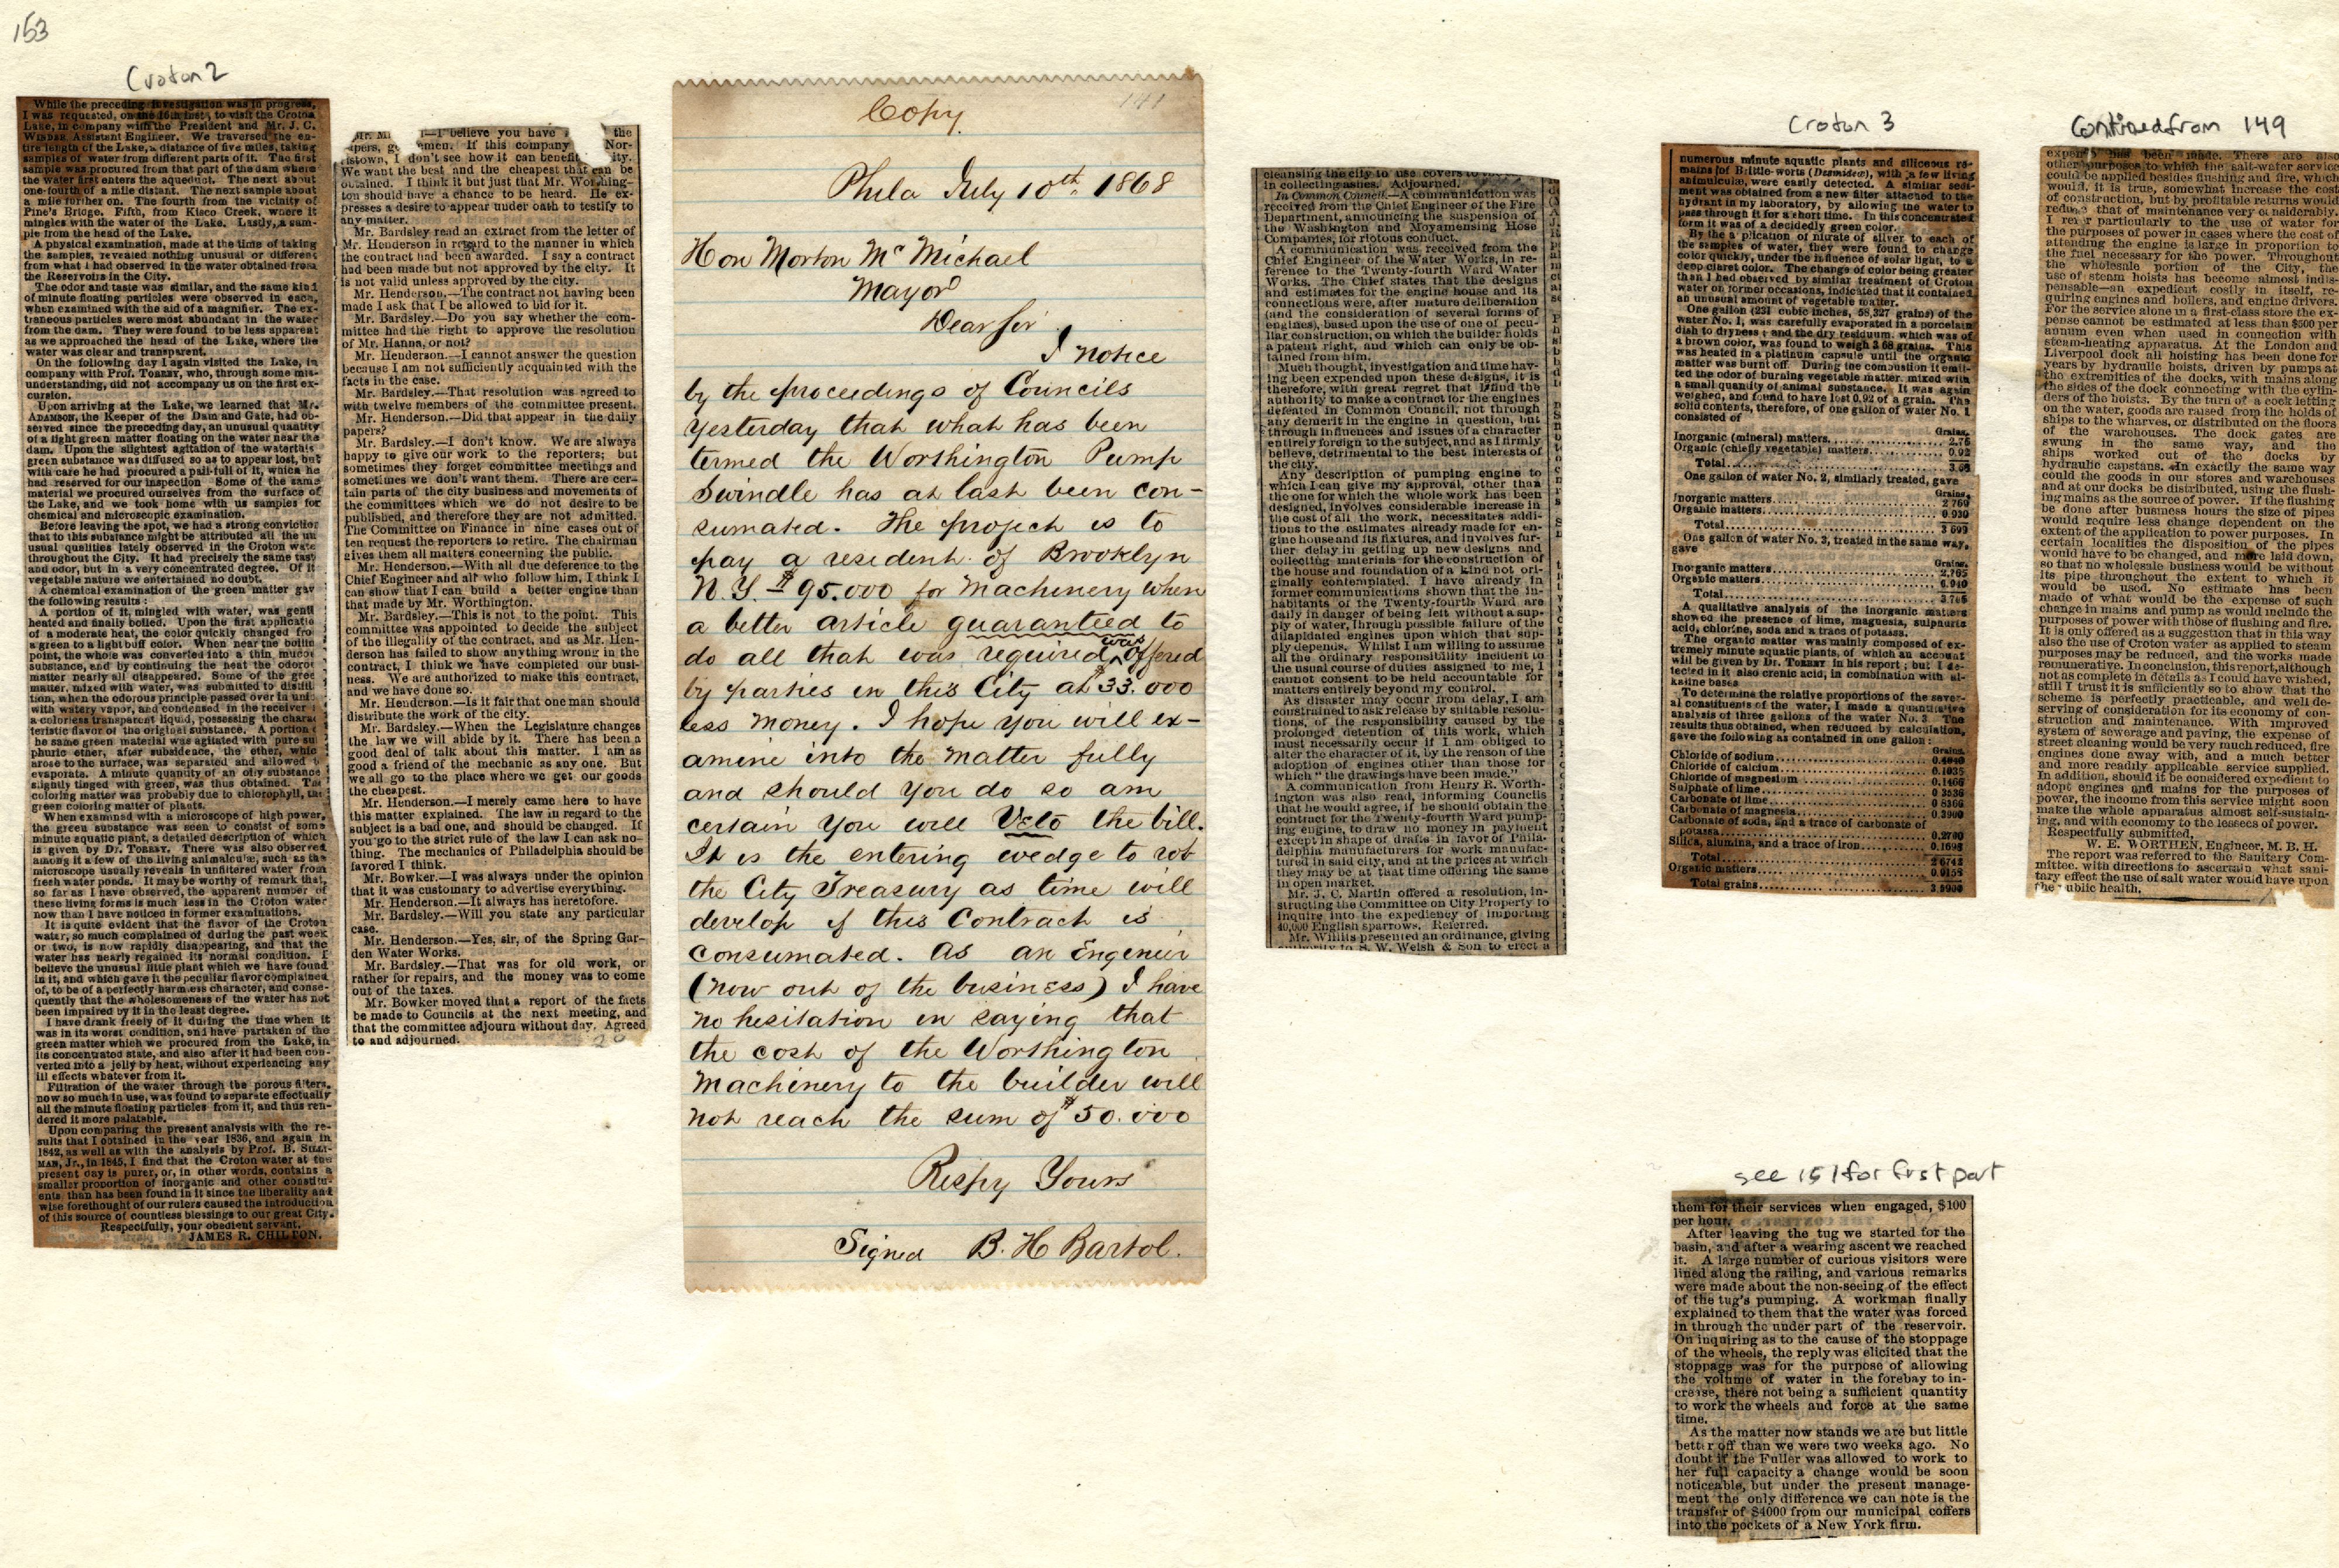 153
Croton 2
While the preceding investigation was in progress,
I was requested, on the 16th inst., to visit the Croton
Lake, in company with the President and Mr. J. C.
WINDER Assistant Engineer. We traversed the en-
tire length of the Lake, a distance of five miles, taking
samples of water from different parts of it. The first
sample was procured from that part of the dam where
the water first enters the aqueduct. The next about
one-fourth of a mile distant. The next sample about
a mile further on. The fourth from the vicinity of
Pine's Bridge. Fifth, from Kisco Creek, where it
mingles with the water of the Lake. Lastly, a sam-
ple from the head of the Lake.
A physical examination, made at the time of taking
the samples, revealed nothing unusual or different
from what I had observed in the water obtained from
the Reservoirs in the City.
The odor and taste was similar, and the same kind
of minute floating particles were observed in each,
when examined with the aid of a magnifier. The ex-
traneous particles were most abundant in the water
from the dam. They were found to be less apparent
as we approached the head of the Lake, where the
water was clear and transparent.
On the following day I again visited the Lake, in
company with Prof. TORREY, who, through some mis-
understanding, did not accompany us on the first ex-
cursion.
Upon arriving at the Lake, we learned that Mr.
ADAMSON, the Keeper of the Dam and Gate, had ob-
served since the preceding day, an unusual quantity
of a light green matter floating on the water near the
dam. Upon the slightest agitation of the water this
green substance was diffused so as to appear lost, but
with care he had procured a pail-full of it, which he
had reserved for our inspection Some of the same
material we procured ourselves from the surface of
the Lake, and we took home with us samples for
chemical and microscopic examination.
Before leaving the spot, we had a strong conviction
that to this substance might be attributed all the un
usual qualities lately observed in the Croton wate
throughout the City. It had precisely the same tast
and odor, but in a very concentrated degree. Of it
vegetable nature we entertained no doubt.
A chemical examination of the green matter gav
the following results:
A portion of it, mingled with water, was gentl
heated and finally boiled. Upon the first applicatio
of a moderate heat, the color quickly changed fro
a green to a light buff color. When near the boilin
point, the whole was converted into a thin, mucou
substance, and by continuing the heat the odorou
matter nearly all disappeared. Some of the gree
matter, mixed with water, was submitted to distill
tion, when the odorous principle passed over in uni
with watery vapor, and condensed in the receiver
a colorless transparent liquid, possessing the charac
teristic flavor of the original substance. A portion o
he same green material was agitated with pure sul
phuric ether, after subsidence, the ether, whic
arose to the surface, was separated and allowed t
evaporate. A minute quantity of an oily substance
slightly tinged with green, was thus obtained. The
coloring matter was probably due to chlorophyll, the
green coloring matter of plants.
When examined with a microscope of high power,
the green substance was seen to consist of some
minute aquatic plant, a detailed description of which
is given by Dr. TORREY. There was also observed
among it a few of the living animalculæ, such as the
microscope usually reveals in unfiltered water from
fresh water ponds. It may be worthy of remark that,
so far as I have observed, the apparent number of
these living forms is much less in the Croton water
now than I have noticed in former examinations.
It is quite evident that the flavor of the Croton
water, so much complained of during the past week
or two, is now rapidly disappearing, and that the
water has nearly regained its normal condition. I
believe the unusual little plant which we have found
in it, and which gave it the peculiar flavor complained
of, to be of a perfectly harmless character, and conse-
quently that the wholesomeness of the water has not
been impaired by it in the least degree.
I have drank freely of it during the time when it
was in its worst condition, and have partaken of the
green matter which we procured from the Lake, in
its concentrated state, and also after it had been con-
verted into a jelly by heat, without experiencing any
ill effects whatever from it.
Filtration of the water through the porous filters,
now so much in use, was found to separate effectually
all the minute floating particles from it, and thus ren-
dered it more palatable.
Upon comparing the present analysis with the re-
sults that I obtained in the year 1836, and again in
1842, as well as with the analysis by Prof. B. SILLI-
MAN, Jr., in 1845, I find that the Croton water at the
present day is purer, or, in other words, contains a
smaller proportion of inorganic and other constitu-
ents than has been found in it since the liberality and
wise forethought of our rulers caused the introduction
of this source of countless blessings to our great City.
Respectfully, your obedient servant,
JAMES R. CHILTON.
—I believe you have the
emen. If this company Nor-
ristown, I don't see how it can benefit ity.
We want the best and the cheapest that can be
obtained. I think it but just that Mr. Worthing-
ton should have a chance to be heard. He ex-
presses a desire to appear under oath to testify to
any matter.
Mr. Bardsley read an extract from the letter of
Mr. Henderson in regard to the manner in which
the contract had been awarded. I say a contract
had been made but not approved by the city. It
is not valid unless approved by the city.
Mr. Henderson.—The contract not having been
made I ask that I be allowed to bid for it.
Mr. Bardsley.—Do you say whether the com-
mittee had the right to approve the resolution
of Mr. Hanna, or not?
Mr. Henderson.—I cannot answer the question
because I am not sufficiently acquainted with the
facts in the case.
Mr. Bardsley.—That resolution was agreed to
with twelve members of the committee present.
Mr. Henderson.—Did that appear in the daily
papers?
Mr. Bardsley.—I don't know. We are always
happy to give our work to the reporters; but
sometimes they forget committee meetings and
sometimes we don't want them. There are cer-
tain parts of the city business and movements of
the committees which we do not desire to be
published, and therefore they are not admitted.
The Committee on Finance in nine cases out of
ten request the reporters to retire. The chairman
gives them all matters concerning the public.
Mr. Henderson.—With all due deference to the
Chief Engineer and all who follow him, I think I
can show that I can build a better engine than
that made by Mr. Worthington.
Mr. Bardsley.—This is not to the point. This
committee was appointed to decide the subject
of the illegality of the contract, and as Mr. Hen-
derson has failed to show anything wrong in the
contract, I think we have completed our busi-
ness. We are authorized to make this contract,
and we have done so.
Mr. Henderson.—Is it fair that one man should
distribute the work of the city.
Mr. Bardsley.—When the Legislature changes
the law we will abide by it. There has been a
good deal of talk about this matter. I am as
good a friend of the mechanic as any one. But
we all go to the place where we get our goods
the cheapest.
Mr. Henderson.—I merely came here to have
this matter explained. The law in regard to the
subject is a bad one, and should be changed. If
you go to the strict rule of the law I can ask no-
thing. The mechanics of Philadelphia should be
favored I think.
Mr. Bowker.—I was always under the opinion
that it was customary to advertise everything.
Mr. Henderson.—It always has heretofore.
Mr. Bardsley.—Will you state any particular
case.
Mr. Henderson.—Yes, sir, of the Spring Gar-
den Water Works.
Mr. Bardsley.—That was for old work, or
rather for repairs, and the money was to come
out of the taxes.
Mr. Bowker moved that a report of the facts
be made to Councils at the next meeting, and
that the committee adjourn without day. Agreed
to and adjourned.
141
Copy
Phila July 10th 1868
Hon Morton Mc Michael
Mayor
Dear Sir
I notice
by the proceedings of Councils
yesterday that what has been
termed the Worthington Pump
Swindle has at last been con-
sumated. The project is to
pay a resident of Brooklyn
N.Y. $95.000 for Machinery when
a better article guaranteed to
do all that was required was offered
by parties in this City at $33.000
less money. I hope you will ex-
amine into the matter fully
and should you do so am
certain you will Veto the bill.
It is the entering wedge to rob
the City Treasury as time will
develop if this Contract is
consumated. As an Engeneir
(now out of the business) I have
no hesitation in saying that
the cost of the Worthington
Machinery to the builder will
not reach the sum of $50.000
Respy Yours
Signed B. H Bartol.
cleansing the city to use covers to
in collecting ashes. Adjourned.
In Common Council.—A communication was
received from the Chief Engineer of the Fire
Department, announcing the suspension of
the Washington and Moyamensing Hose
Companies, for riotous conduct.
A communication was received from the
Chief Engineer of the Water Works, in re-
ference to the Twenty-fourth Ward Water
Works. The Chief states that the designs
and estimates for the engine house and its
connections were, after mature deliberation
(and the consideration of several forms of
engines), based upon the use of one of pecu-
liar construction, on which the builder holds
a patent right, and which can only be ob-
tained from him.
Much thought, investigation and time hav-
ing been expended upon these designs, it is
therefore, with great regret that I find the
authority to make a contract for the engines
defeated in Common Council, not through
any demerit in the engine in question, but
through influences and issues of a character
entirely foreign to the subject, and as I firmly
believe, detrimental to the best interests of
the city.
Any description of pumping engine to
which I can give my approval, other than
the one for which the whole work has been
designed, involves considerable increase in
the cost of all the work, necessitates addi-
tions to the estimates already made for en-
gine house and its fixtures, and involves fur-
ther delay in getting up new designs and
collecting materials for the construction of
the house and foundation of a kind not ori-
ginally contemplated. I have already in
former communications shown that the in-
habitants of the Twenty-fourth Ward are
daily in danger of being left without a sup-
ply of water, through possible failure of the
dilapidated engines upon which that sup-
ply depends. Whilst I am willing to assume
all the ordinary responsibility incident to
the usual course of duties assigned to me, I
cannot consent to be held accountable for
matters entirely beyond my control.
As disaster may occur from delay, I am
constrained to ask release by suitable resolu-
tions, of the responsibility caused by the
prolonged detention of this work, which
must necessarily occur if I am obliged to
alter the character of it, by the reason of the
adoption of engines other than those for
which "the drawings have been made."
A communication from Henry R. Worth-
ington was also read, informing Councils
that he would agree, if he should obtain the
contract for the Twenty-fourth Ward pump-
ing engine, to draw no money in payment
except in shape of drafts in favor of Phila-
delphia manufacturers for work manufac-
tured in said city, and at the prices at which
they may be at that time offering the same
in open market.
Mr. J. C. Martin offered a resolution, in-
structing the Committee on City Property to
inquire into the expediency of importing
40,000 English sparrows. Referred.
Mr. Willits presented an ordinance, giving
authority to S. W. Welsh & Son to erect a
Croton 3
numerous minute aquatic plants and siliceous re-
mains of Brittle-worts (Desmideæ), with a few living
animalculæ, were easily detected. A similar sedi-
ment was obtained from a new filter attached to the
hydrant in my laboratory, by allowing the water to
pass through it for a short time. In this concentrated
form it was of a decidedly green color.
By the application of nitrate of silver to each of
the samples of water, they were found to change
color quickly, under the influence of solar light, to a
deep claret color. The change of color being greater
than I had observed by similar treatment of Croton
water on former occasions, indicated that it contained
an unusual amount of vegetable matter.
One gallon (231 cubic inches, 58,327 grains) of the
water No. 1, was carefully evaporated in a porcelain
dish to dryness; and the dry residuum, which was of
a brown color, was found to weigh 3 68 grains. This
was heated in a platinum capsule until the organic
matter was burnt off. During the combustion it emit-
ted the odor of burning vegetable matter, mixed with
a small quantity of animal substance. It was again
weighed, and found to have lost 0.92 of a grain. The
solid contents, therefore, of one gallon of water No. 1
consisted of
Grains.
Inorganic (mineral) matters............2.76
Organic (chiefly vegetable) matters....0.92
Total............3.68
One gallon of water No. 2, similarly treated, gave
Grains.
Inorganic matters............2 769
Organic matters............0.930
Total............3 699
One gallon of water No. 3, treated in the same way,
gave
Grains.
Inorganic matters............2,765
Organic matters............0.940
Total............3.705
A qualitative analysis of the inorganic matters
showed the presence of lime, magnesia, sulphuric
acid, chlorine, soda and a trace of potassa.
The organic matter was mainly composed of ex-
tremely minute aquatic plants, of which an account
will be given by Dr. TORREY in his report; but I de-
tected in it also crenic acid, in combination with al-
kaline bases
To determine the relative proportions of the sever-
al constituents of the water, I made a quantitive
analysis of three gallons of the water No. 3. The
results thus obtained, when reduced by calculation,
gave the following as contained in one gallon:
Grains.
Chloride of sodium............0.4840
Chloride of calcium............0.1035
Chloride of magnesium............0.1466
Sulphate of lime............0 3536
Carbonate of lime............0 8366
Carbonate of magnesia............0.3900
Carbonate of soda, and a trace of carbonate of
potassa............0.2700
Silica, alumina, and a trace of iron............0.1698
Total............2 6742
Organic matters............0.9158
Total grains............3.5900
Continued from 149
expen has been made. There are also
other purposes to which the salt-water service
could be applied besides flushing and fire, which
would, it is true, somewhat increase the cost
of construction, but by profitable returns would
reduce that of maintenance very considerably.
I refer particularly to the use of water for
the purposes of power in cases where the cost of
attending the engine is large in proportion to
the fuel necessary for the power. Throughout
the wholesale portion of the City, the
use of steam hoists has become almost indis-
pensable—an expedient costly in itself, re-
quiring engines and boilers, and engine drivers.
For the service alone in a first-class store the ex-
pense cannot be estimated at less than $500 per
annum even when used in connection with
steam-heating apparatus. At the London and
Liverpool dock all hoisting has been done for
years by hydraulic hoists, driven by pumps at
the extremities of the docks, with mains along
the sides of the dock connecting with the cylin-
ders of the hoists. By the turn of a cock letting
on the water, goods are raised from the holds of
ships to the wharves, or distributed on the floors
of the warehouses. The dock gates are
swung in the same way, and the
ships worked out of the docks by
hydraulic capstans. In exactly the same way
could the goods in our stores and warehouses
and at our docks be distributed, using the flush-
ing mains as the source of power. If the flushing
be done after business hours the size of pipes
would require less change dependent on the
extent of the application to power purposes. In
certain localities the disposition of the pipes
would have to be changed, and more laid down,
so that no wholesale business would be without
its pipe throughout the extent to which it
would be used. No estimate has been
made of what would be the expense of such
change in mains and pump as would include the
purposes of power with those of flushing and fire.
It is only offered as a suggestion that in this way
also the use of Croton water as applied to steam
purposes may be reduced, and the works made
remunerative. In conclusion, this report, although
not as complete in details as I could have wished,
still I trust it is sufficiently so to show that the
scheme is perfectly practicable, and well de-
serving of consideration for its economy of con-
struction and maintenance. With improved
system of sewerage and paving, the expense of
street cleaning would be very much reduced, fire
engines done away with, and a much better
and more readily applicable service supplied.
In addition, should it be considered expedient to
adopt engines and mains for the purposes of
power, the income from this service might soon
make the whole apparatus almost self-sustain-
ing, and with economy to the lessees of power.
Respectfully submitted,
W. E. WORTHEN, Engineer, M. B. H.
The report was referred to the Sanitary Com-
mittee, with directions to ascertain what sani-
tary effect the use of salt water would have upon
the public health.
see 151 for first part
them for their services when engaged, $100
per hour.
After leaving the tug we started for the
basin, and after a wearing ascent we reached
it. A large number of curious visitors were
lined along the railing, and various remarks
were made about the non-seeing of the effect
of the tug's pumping. A workman finally
explained to them that the water was forced
in through the under part of the reservoir.
On inquiring as to the cause of the stoppage
of the wheels, the reply was elicited that the
stoppage was for the purpose of allowing
the volume of water in the forebay to in-
crease, there not being a sufficient quantity
to work the wheels and force at the same
time.
As the matter now stands we are but little
better off than we were two weeks ago. No
doubt if the Fuller was allowed to work to
her full capacity a change would be soon
noticeable, but under the present manage-
ment the only difference we can note is the
transfer of $4000 from our municipal coffers
into the pockets of a New York firm.